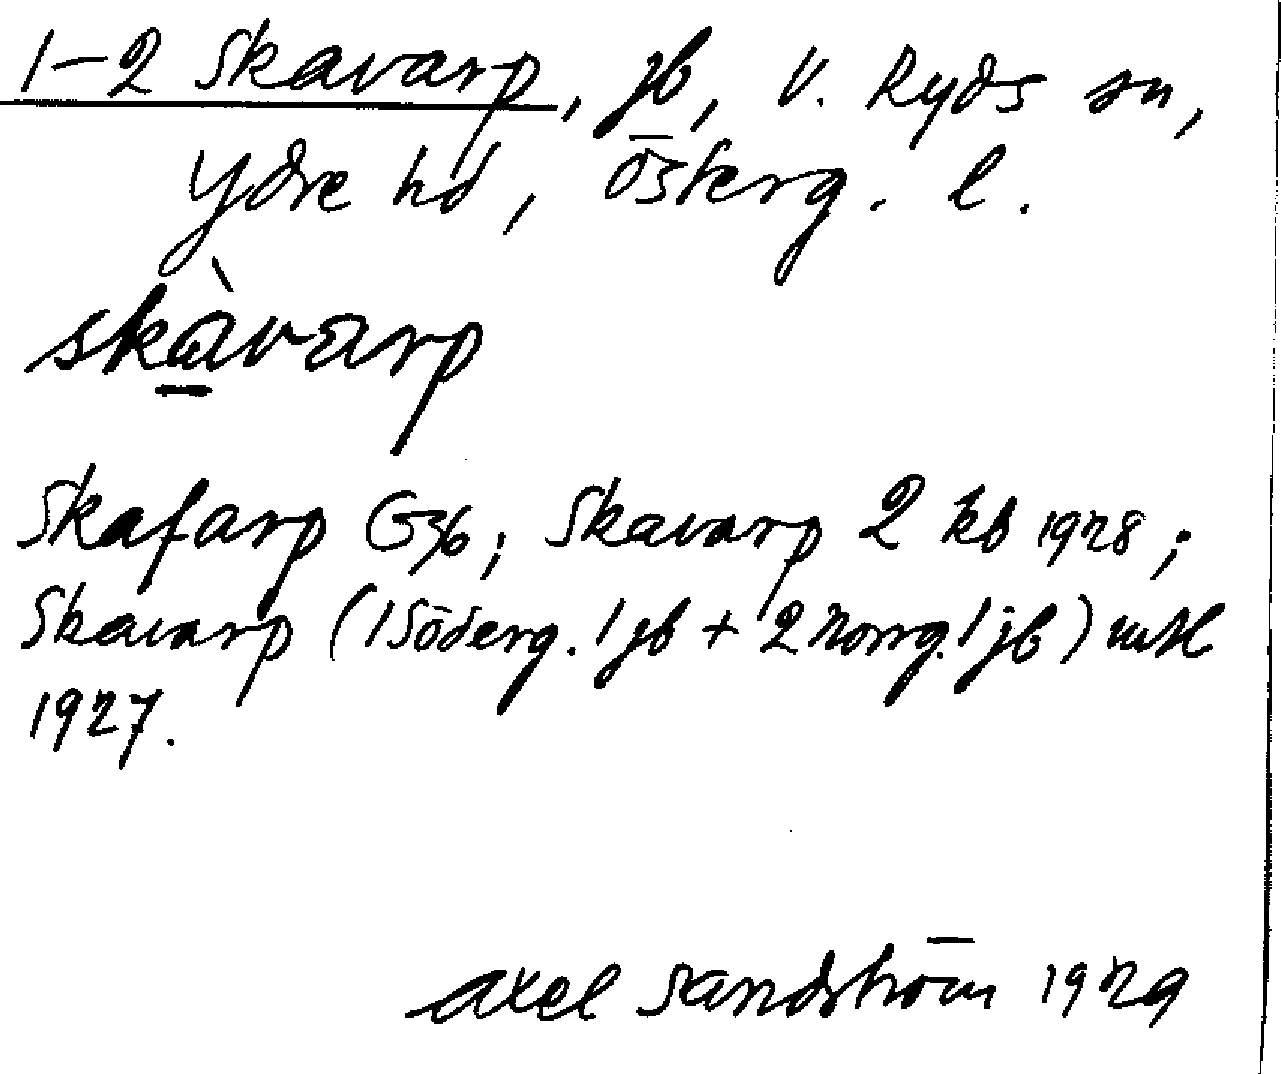 1-2 Skavarp, jb, V. Ryds sn,
Ydre hd, Österg. l.
skàvarp
Skafarp G 3/6; Skavarp 2 kb 1928;
Skavarp (1 Söderg. 1 jb + 2 Norrg. 1 jb) mtl
1927.
Axel Sandström 1929